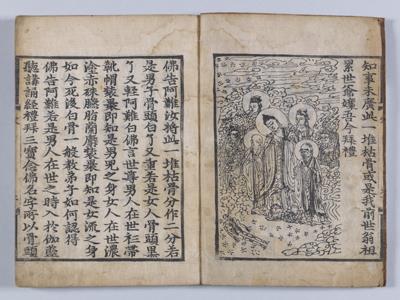 知事未廣此一堆枯骨或是我前世翁祖
累世爺孃吾今拜禮
佛告阿難汝將此一堆枯骨分作二分若
是男子骨頭白了又重若是女人骨頭黑
了又輕阿難白佛言世尊男人在世衫帶
靴帽裝裹即知是男兒之身女人在世濃
塗赤硃臙脂蘭麝裝裹即知是女流之身
如今死後白骨一般教弟子如何認得
佛告阿難若是男人在世之時入於伽藍
聽講誦經禮拜三寶念佛名字所以骨頭